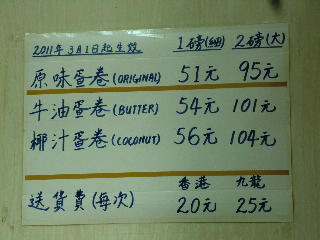 2011年3月1日起生效 1磅(細) 2磅(大)
原味蛋卷(ORIGINAL) 51元 95元
牛油蛋卷(BUTTER) 54元 101元
椰汁蛋卷(COCONUT) 56元 104元
香港 九龍
送貨費(每次) 20元 25元